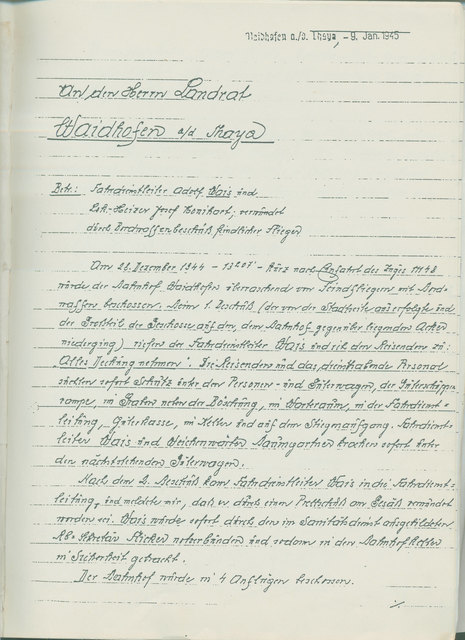 Waidhofen a./d. Thaya, - 9. Jan. 1945
An den Herrn Landrat
Waidhofen a/d Thaya
Betr.: Fahrdienstleiter Adolf Wais und
Lok-Heizer Josef Honikart; verwundet
durch Bordwaffenbeschuß feindlicher Flieger
Am 28. Dezember 1944 - 13²⁰⁷ - kurz nach Einfahrt des Zuges 1748
wurde der Bahnhof Waidhofen überraschend von Feindfliegern mit Bord-
waffen beschossen. Beim 1. Beschuß (der von der Stadtseite aus erfolgte und
der Großteil der Geschosse auf den, dem Bahnhof gegenüber liegenden Acker
niederging) riefen der Fahrdienstleiter Wais und ich den Reisenden zu:
„Alles Deckung nehmen". Die Reisenden und das diensthabende Personal
suchten sofort Schutz unter den Personen- und Güterwagen, der Güterschuppen-
rampe, im Graben neben der Böschung, im Warteraum, in der Fahrdienst-
leitung, Güterkasse, im Keller und auf dem Stiegenaufgang. Fahrdienst-
leiter Wais und Weichenwärter Baumgartner krochen sofort unter
den nächststehenden Güterwagen.
Nach dem 2. Beschuß kam Fahrdienstleiter Wais in die Fahrdienst-
leitung, und meldete mir, daß er durch einen Prellschuß am Gesäß verwundet
worden sei. Wais wurde sofort durch den im Sanitätsdienst ausgebildeten
RB Sekretär Sticker verbunden und sodann in den Bahnhofkeller
in Sicherheit gebracht.
Der Bahnhof wurde in 4 Anflügen beschossen.
./.